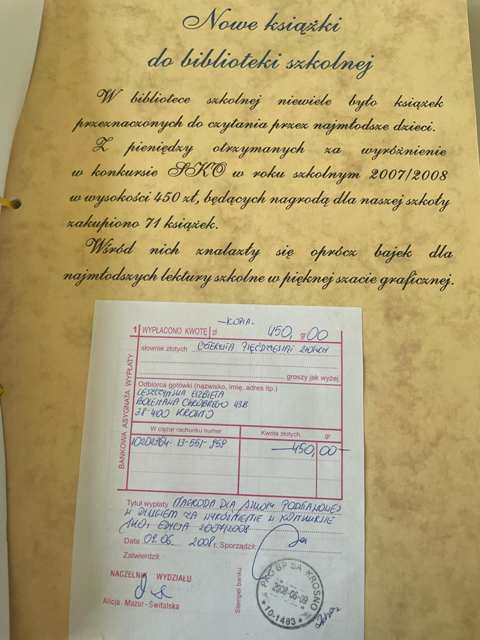 Nowe książki
do biblioteki szkolnej
W bibliotece szkolnej niewiele było książek
przeznaczonych do czytania przez najmłodsze dzieci.
Z pieniędzy otrzymanych za wyróżnienie
w konkursie SKO w roku szkolnym 2007/2008
w wysokości 450 zł, będących nagrodą dla naszej szkoły
zakupiono 71 książek.
Wśród nich znalazły się oprócz bajek dla
najmłodszych lektury szkolne w pięknej szacie graficznej.
- KOPIA -
1 WYPŁACONO KWOTĘ zł 450, gr 00
słownie złotych CZTERYSTA PIĘĆDZIESIĄT ZŁOTYCH
groszy jak wyżej
BANKOWA ASYGNATA WYPŁATY
Odbiorca gotówki (nazwisko, imię, adres itp.)
LESZCZYŃSKA ELŻBIETA
BOLESŁAWA CHROBREGO 43B
38-400 KROSNO
W ciężar rachunku numer Kwota złotych gr
450,00-
Tytuł wypłaty NAGRODA DLA SZKOŁY PODSTAWOWEJ
W ZA WYRÓŻNIENIE W KONKURSIE
SKO, EDYCJA 2007/2008
Data 09.06 2008 r. Sporządził:
Zatwierdził:
NACZELNIK WYDZIAŁU
Alicja Mazur-Świtalska
Stempel banku:
PKO BP SA KROSNO
2008-06-09
10-1493